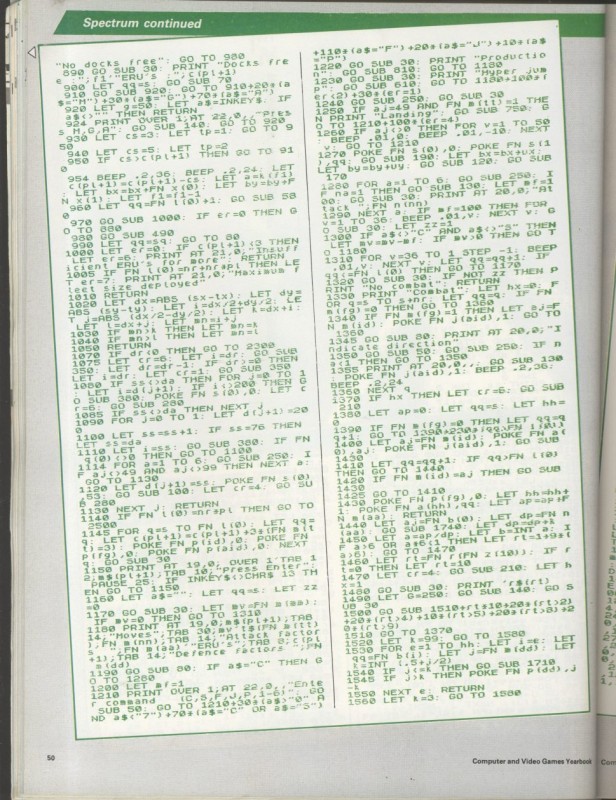 Spectrum continued
"No docks free": GO TO 980
890 GO SUB 30: PRINT "Docks fre
e :";f1'"ERU's :";c(pl+1)
900 LET qq=s: GO SUB 70
910 GO SUB 920: GO TO 910+20*(a
$="M")+30*(a$="G")+70*(a$="A")
920 LET g=50: LET a$=INKEY$: IF
a$<>"" THEN RETURN
924 PRINT OVER 1;AT 22,0;"Pres
s M,G,A": GO SUB 140: GO TO 920
930 LET cs=3: LET tp=1: GO TO 9
50
940 LET cs=5: LET tp=2
950 IF cs>c(pl+1) THEN GO TO 91
0
954 BEEP .2,36: BEEP .2,24: LET
c(pl+1)=c(pl+1)-cs: LET a=k(f1)
: LET bx=bx+FN x(0): LET by=by+F
N x(1): LET f1=f1-1
960 LET qq=FN l(0)+1: GO SUB 58
0
970 GO SUB 1000: IF er=0 THEN G
O TO 880
980 GO SUB 490
990 LET qq=sq: GO TO 80
1000 LET er=0: IF c(pl+1)<3 THEN
LET er=6: PRINT AT 21,0;"Insuff
icient ERU's for more": RETURN
1005 IF FN l(0)=nr+nr+pl THEN LE
T er=7: PRINT AT 21,0;"Maximum f
leet size deployed"
1010 RETURN
1020 LET dx=ABS (sx-tx): LET dy=
ABS (sy-ty): LET i=dx/2+dy/2: LE
T j=ABS (dx/2-dy/2): LET k=dx+i:
LET l=dx+j: LET mn=i+j
1030 IF mn>k THEN LET mn=k
1040 IF mn>l THEN LET mn=l
1050 RETURN
1070 IF dr<0 THEN GO TO 2300
1075 LET cr=6: LET i=dr: GO SUB
350: LET dr=dr-1: IF dr>=0 THEN
LET i=dr: LET cr=1: GO SUB 350
1080 IF ss<>da THEN FOR j=0 TO 1
: LET i=d(j+1): IF i<>200 THEN G
O SUB 380: POKE FN s(0),0: LET c
r=6: GO SUB 280
1085 IF ss<>da THEN NEXT j
1090 FOR j=0 TO 1: LET d(j+1)=20
0
1100 LET ss=ss+1: IF ss=76 THEN
LET ss=da
1110 LET i=ss: GO SUB 380: IF FN
q(0)<>0 THEN GO TO 1100
1114 FOR a=1 TO 6: GO SUB 250: I
F aj<>49 AND aj<>99 THEN NEXT a:
GO TO 1130
1120 LET d(j+1)=ss: POKE FN s(0)
,53: GO SUB 100: LET cr=4: GO SU
B 280
1130 NEXT j: RETURN
1140 IF FN l(0)=nr+pl THEN GO TO
2500
1145 FOR q=s TO FN l(0): LET qq=
q: LET c(pl+1)=c(pl+1)+3*(FN m(t
l)=3): POKE FN p(id),0: POKE FN
p(fg),0: POKE FN p(aid),0: NEXT
q: GO SUB 30
1150 PRINT AT 19,0; OVER 1'TAB 1
2;m$(pl+1);TAB 10;"Press Enter":
PAUSE 25: IF INKEY$<>CHR$ 13 TH
EN GO TO 1150
1160 LET a$="": LET qq=s: LET zz
=0
1170 GO SUB 30: LET mv=FN m(ma):
IF mv=0 THEN GO TO 1310
1180 PRINT AT 19,0;m$(pl+1);TAB
14;"Moves";TAB 30;mv't$(FN m(tt)
);FN m(nn);TAB 14;"Attack factor
s ";FN m(aa)'"ERU's";TAB 8;c(pl
+1);TAB 14;"Defence factors ";FN
m(dd)
1190 GO SUB 80: IF a$="C" THEN G
O TO 1280
1200 LET mf=1
1210 PRINT OVER 1;AT 22,0;"Ente
r command (C,S,F,J,P,1-6)": GO
SUB 50: GO TO 1210+30*(a$>"0" A
ND a$<"7")+70*(a$="C" OR a$="S")
+110*(a$="F")+20*(a$="J")+10*(a$
="P")
1220 GO SUB 30: PRINT "Productio
n": GO SUB 810: GO TO 1180
1230 GO SUB 30: PRINT "Hyper jum
p": GO SUB 610: GO TO 1180+100*(
er<2)+30*(er=1)
1240 GO SUB 250: GO SUB 30
1250 IF aj=49 AND FN m(tt)=1 THE
N PRINT "Landing": GO SUB 750: G
O TO 1210+100*(er=4)
1260 IF aj<>0 THEN FOR v=1 TO 50
: BEEP .01,0: BEEP .01,-10: NEXT
v: GO TO 1210
1270 POKE FN s(0),0: POKE FN s(1
),qq: GO SUB 190: LET bx=bx+ux:
LET by=by+uy: GO SUB 120: GO SUB
170
1280 FOR a=1 TO 6: GO SUB 250: I
F na=1 THEN GO SUB 130: LET mf=1
00: GO SUB 30: PRINT AT 20,0;"At
tack ";FN n(nn)
1290 NEXT a: IF mf=100 THEN FOR
v=1 TO 36: BEEP .01,v: NEXT v: G
O SUB 30: LET zz=1
1300 IF a$<>"C" AND a$<>"S" THEN
LET mv=mv-mf: IF mv>0 THEN GO T
O 1180
1310 FOR v=36 TO 1 STEP -1: BEEP
.01,v: NEXT v: LET qq=qq+1: IF
qq<=FN l(0) THEN GO TO 1170
1320 GO SUB 30: IF NOT zz THEN P
RINT "No combat": RETURN
1330 PRINT "Combat": LET hx=0: F
OR q=s TO s+nr: LET qq=q: IF FN
m(fg)=0 THEN GO TO 1360
1340 IF FN m(fg)=1 THEN LET aj=F
N m(id): POKE FN j(aid),1: GO TO
1390
1345 GO SUB 80: PRINT AT 20,0;"I
ndicate direction"
1350 GO SUB 50: GO SUB 250: IF n
a<1 THEN GO TO 1350
1355 PRINT AT 20,0,,: GO SUB 130
: POKE FN j(aid),1: BEEP .2,36:
BEEP .2,24
1360 NEXT q
1370 IF hx THEN LET cr=6: GO SUB
210
1380 LET ap=0: LET qq=s: LET hh=
0
1390 IF FN m(fg)=0 THEN LET qq=q
q+1: GO TO 1390+230*(qq>FN l(0))
1400 LET aj=FN m(id): POKE FN a(
0),aj: POKE FN j(aid),1: GO SUB
1430
1410 LET qq=qq+1: IF qq>FN l(0)
THEN GO TO 1440
1420 IF FN m(id)=aj THEN GO SUB
1430
1425 GO TO 1410
1430 POKE FN p(fg),0: LET hh=hh+
1: POKE FN a(hh),qq: LET ap=ap+F
N m(aa): RETURN
1440 LET aj=FN b(0): LET dp=FN n
(aa): GO SUB 1740: LET dp=dp+k
1450 LET a=ap/dp: LET b=INT a: I
F a>6 OR a<6(1 THEN LET rt=1+9*(
a>6): GO TO 1470
1460 LET rt=FN r(FN z(10)): IF r
t=0 THEN LET rt=10
1470 LET cr=4: GO SUB 210: LET h
x=1
1480 GO SUB 30: PRINT 'r$(rt)
1490 LET G=250: GO SUB 140: GO S
UB 30
1500 GO SUB 1510+rt*10+20*(rt>2)
+20*(rt>4)+10*(rt>5)+20*(rt>8)+2
0*(rt>9)
1510 GO TO 1370
1520 LET k=99: GO TO 1580
1530 FOR e=1 TO hh: LET i=e: LET
qq=FN b(i): LET j=FN m(dd): LET
k=INT (.5+j/2)
1540 IF j<=k THEN GO SUB 1710
1545 IF j>k THEN POKE FN p(dd),j
-k
1550 NEXT e: RETURN
1560 LET k=3: GO TO 1580
50
Computer and Video Games Yearbook